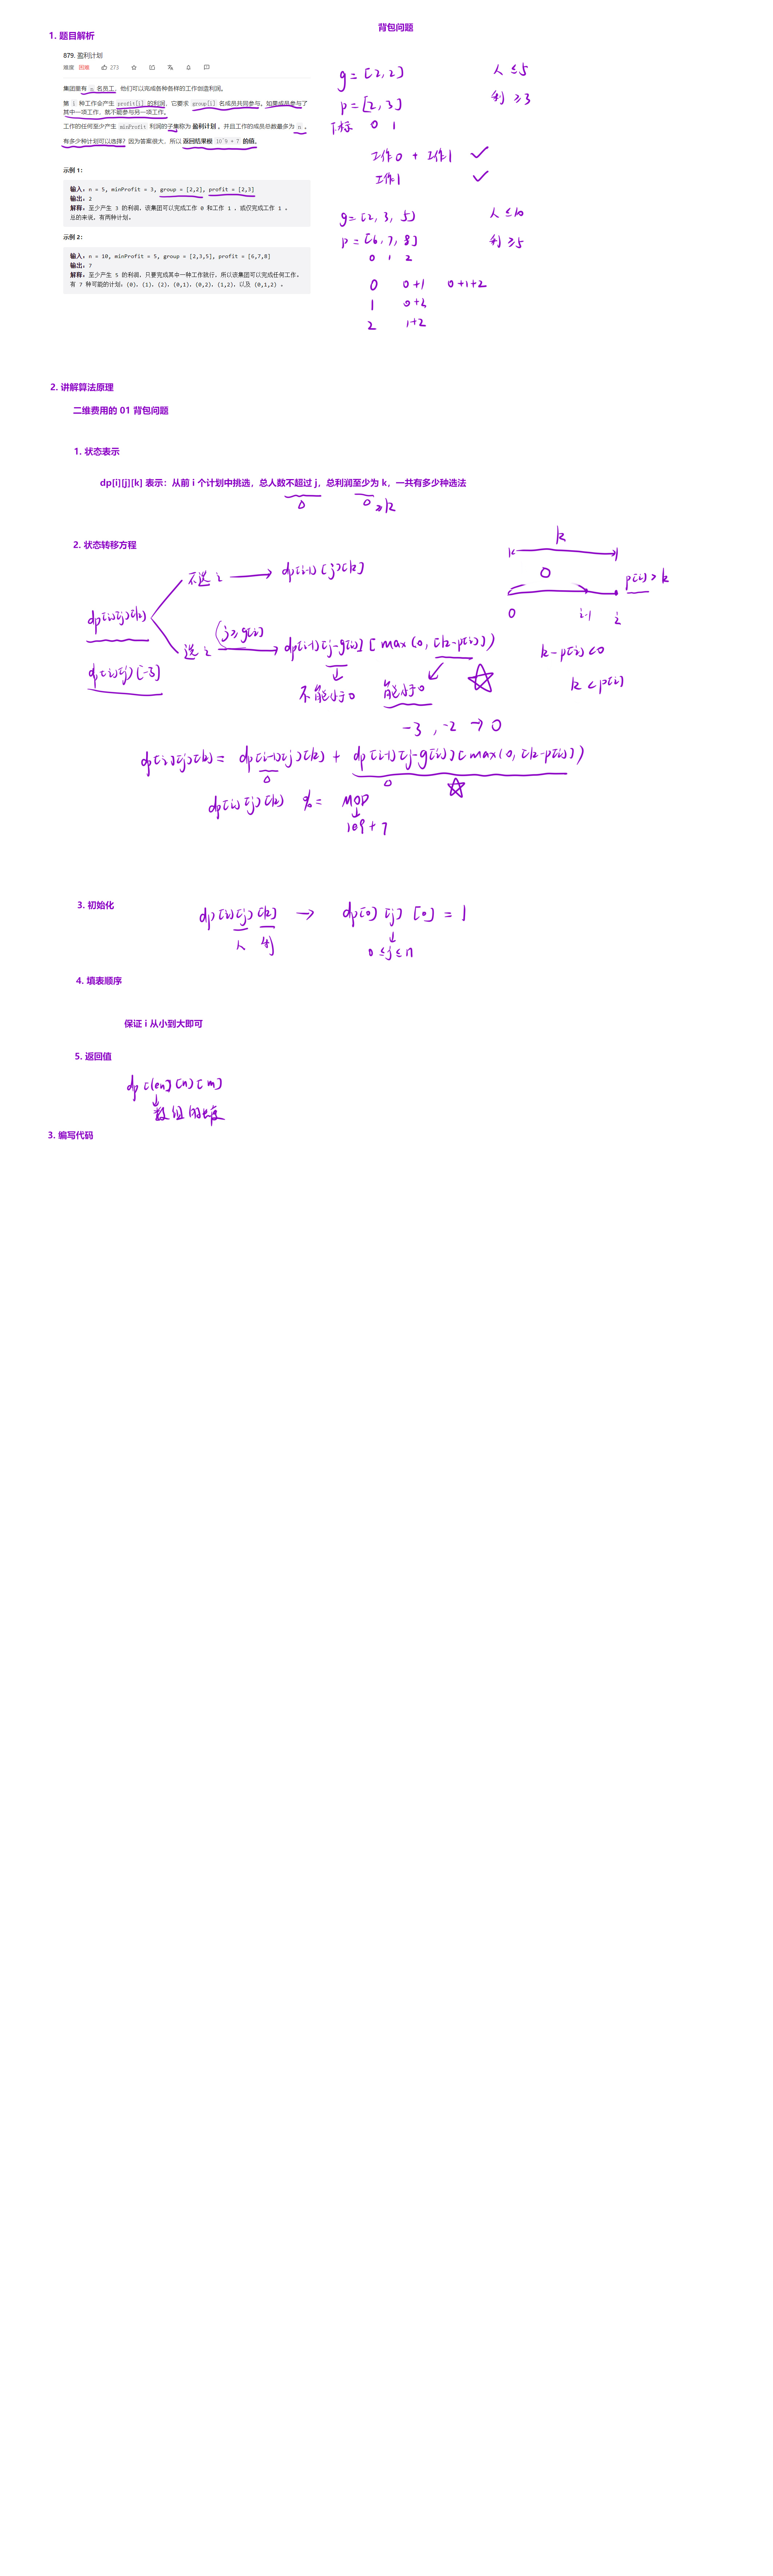 背包问题
1. 题目解析
879. 盈利计划
难度 困难 273
集团里有 n 名员工，他们可以完成各种各样的工作创造利润。
第 i 种工作会产生 profit[i] 的利润，它要求 group[i] 名成员共同参与。如果成员参与了
其中一项工作，就不能参与另一项工作。
工作的任何至少产生 minProfit 利润的子集称为 盈利计划 。并且工作的成员总数最多为 n 。
有多少种计划可以选择？因为答案很大，所以 返回结果模 10^9 + 7 的值。
示例 1：
输入：n = 5, minProfit = 3, group = [2,2], profit = [2,3]
输出：2
解释：至少产生 3 的利润，该集团可以完成工作 0 和工作 1 ，或仅完成工作 1 。
总的来说，有两种计划。
示例 2：
输入：n = 10, minProfit = 5, group = [2,3,5], profit = [6,7,8]
输出：7
解释：至少产生 5 的利润，只要完成其中一种工作就行，所以该集团可以完成任何工作。
有 7 种可能的计划：(0)，(1)，(2)，(0,1)，(0,2)，(1,2)，以及 (0,1,2) 。
g = [2,2] 人 ≤ 5
p = [2,3] 利 ≥ 3
下标 0 1
工作0 + 工作1 ✓
工作1 ✓
g = [2, 3, 5] 人 ≤ 10
p = [6, 7, 8] 利 ≥ 5
0 1 2
0 0+1 0+1+2
1 0+2
2 1+2
2. 讲解算法原理
二维费用的 01 背包问题
1. 状态表示
dp[i][j][k] 表示：从前 i 个计划中挑选，总人数不超过 j，总利润至少为 k，一共有多少种选法
0 0 ≥k
2. 状态转移方程
dp[i][j][k]
不选 i → dp[i-1][j][k]
选 i (j≥g[i]) → dp[i-1][j-g[i]][max(0, [k-p[i])]
dp[i][j][-3]
不能小于0 能小于0
-3 , -2 → 0
k
0 p[i] > k
0 i-1 i
k-p[i] <0
k < p[i]
dp[i][j][k] = dp[i-1][j][k] + dp[i-1][j-g[i]][max(0, [k-p[i])]
0 0
dp[i][j][k] %= MOD
10^9 + 7
3. 初始化
dp[i][j][k] → dp[0][j][0] = 1
人 利 0 ≤ j ≤ n
4. 填表顺序
保证 i 从小到大即可
5. 返回值
dp[len][n][m]
数组的长度
3. 编写代码